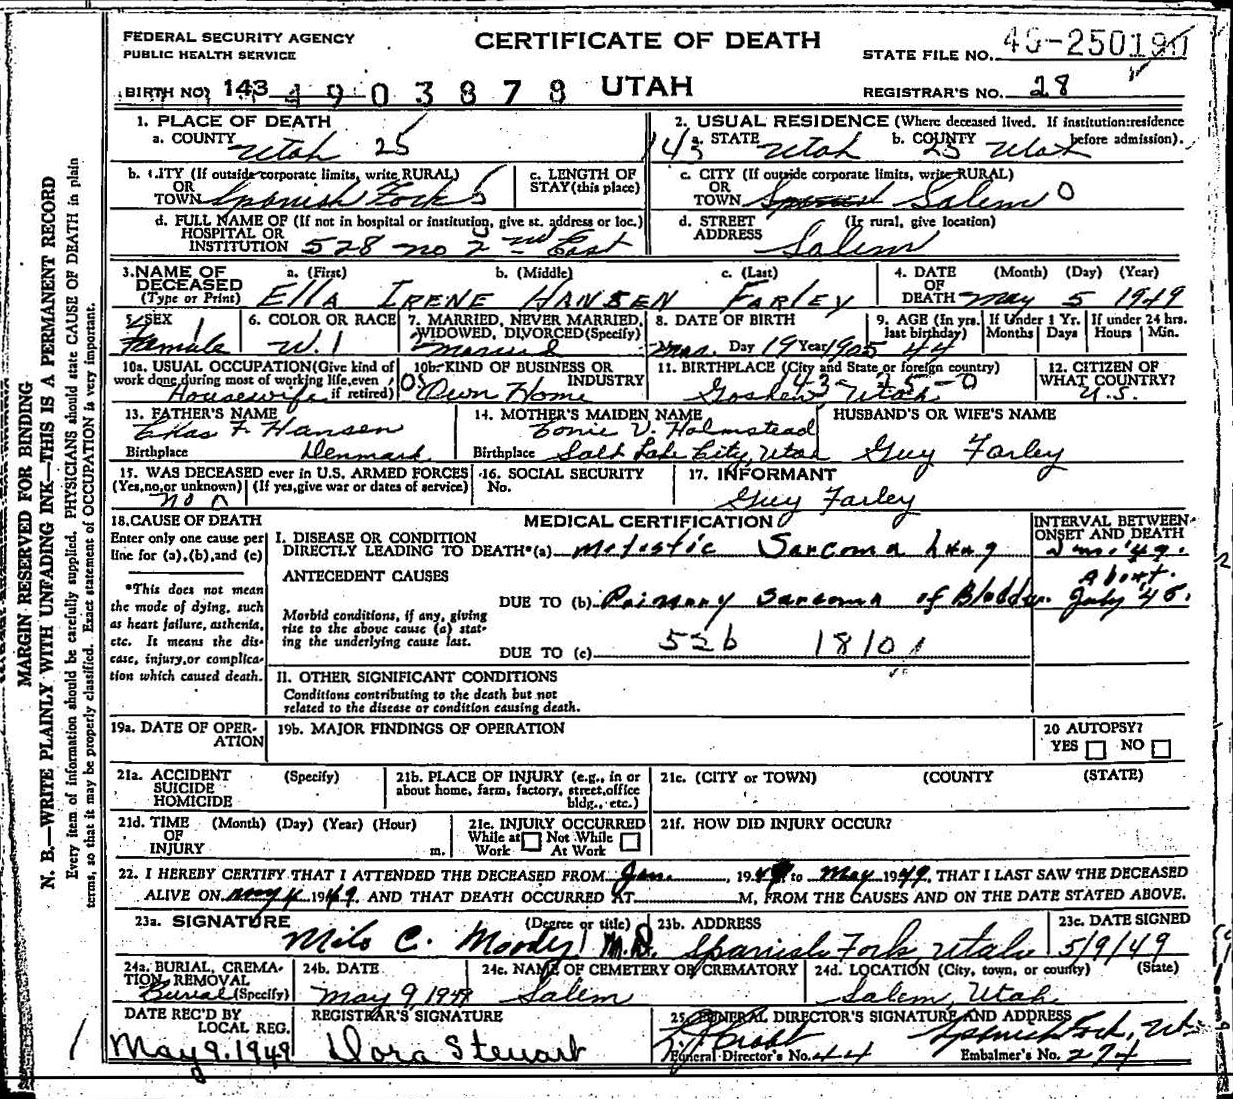 FEDERAL SECURITY AGENCY
PUBLIC HEALTH SERVICE
CERTIFICATE OF DEATH
STATE FILE NO. 49-250190
BIRTH NO. 143 4903878 UTAH
REGISTRAR'S NO. 28
MARGIN RESERVED FOR BINDING
N. B.—WRITE PLAINLY WITH UNFADING INK—THIS IS A PERMANENT RECORD
Every item of information should be carefully supplied. PHYSICIANS should state CAUSE OF DEATH in plain
terms, so that it may be properly classified. Exact statement of OCCUPATION is very important.
1. PLACE OF DEATH
a. COUNTY Utah 25
2. USUAL RESIDENCE (Where deceased lived. If institution:residence before admission).
143 a. STATE Utah b. COUNTY 25 Utah
b. CITY (If outside corporate limits, write RURAL)
OR
TOWN Spanish Fork 5
c. LENGTH OF
STAY (this place)
c. CITY (If outside corporate limits, write RURAL)
OR
TOWN Salem 0
d. FULL NAME OF (If not in hospital or institution, give st. address or loc.)
HOSPITAL OR
INSTITUTION 528 no 2nd East
d. STREET (If rural, give location)
ADDRESS Salem
3. NAME OF
DECEASED
(Type or Print)
a. (First) b. (Middle) c. (Last)
Ella Irene Hansen Farley
4. DATE (Month) (Day) (Year)
OF
DEATH May 5 1949
5. SEX
Female
6. COLOR OR RACE
W. 1
7. MARRIED, NEVER MARRIED,
WIDOWED, DIVORCED (Specify)
Married
8. DATE OF BIRTH
Mar. Day 19 Year 1905
9. AGE (In yrs.
last birthday)
44
If Under 1 Yr.
Months Days
If under 24 hrs.
Hours Min.
10a. USUAL OCCUPATION (Give kind of
work done during most of working life, even
if retired)
Housewife
10b. KIND OF BUSINESS OR
INDUSTRY
Own Home
11. BIRTHPLACE (City and State or foreign country)
43-25-0
Goshen Utah
12. CITIZEN OF
WHAT COUNTRY?
U.S.
13. FATHER'S NAME
Chas F. Hansen
Birthplace Denmark
14. MOTHER'S MAIDEN NAME
V. Holmstead
Birthplace Salt Lake City, Utah
HUSBAND'S OR WIFE'S NAME
Guy Farley
15. WAS DECEASED ever in U.S. ARMED FORCES
(Yes, no, or unknown) (If yes, give war or dates of service)
no
16. SOCIAL SECURITY
No.
17. INFORMANT
Guy Farley
18. CAUSE OF DEATH
Enter only one cause per
line for (a), (b), and (c)
*This does not mean
the mode of dying, such
as heart failure, asthenia,
etc. It means the dis-
ease, injury, or complica-
tion which caused death.
MEDICAL CERTIFICATION
I. DISEASE OR CONDITION
DIRECTLY LEADING TO DEATH*(a) Metestic Sarcoma Lung
INTERVAL BETWEEN
ONSET AND DEATH
ANTECEDENT CAUSES
Morbid conditions, if any, giving
rise to the above cause (a) stat-
ing the underlying cause last.
DUE TO (b) Primary Sarcoma of Bladder
About
DUE TO (c) 52b 1810
II. OTHER SIGNIFICANT CONDITIONS
Conditions contributing to the death but not
related to the disease or condition causing death.
19a. DATE OF OPER-
ATION
19b. MAJOR FINDINGS OF OPERATION
20 AUTOPSY?
YES NO
21a. ACCIDENT (Specify)
SUICIDE
HOMICIDE
21b. PLACE OF INJURY (e.g., in or
about home, farm, factory, street, office
bldg., etc.)
21c. (CITY or TOWN) (COUNTY (STATE)
21d. TIME (Month) (Day) (Year) (Hour)
OF
INJURY m.
21e. INJURY OCCURRED
While at Work Not While At Work
21f. HOW DID INJURY OCCUR?
22. I HEREBY CERTIFY THAT I ATTENDED THE DECEASED FROM Jan. 1949, to May 1949, THAT I LAST SAW THE DECEASED
ALIVE ON May 4 1949, AND THAT DEATH OCCURRED AT M, FROM THE CAUSES AND ON THE DATE STATED ABOVE.
23a. SIGNATURE (Degree or title)
Milo C. Moody M.D.
23b. ADDRESS
Spanish Fork, Utah
23c. DATE SIGNED
5/9/49
24a. BURIAL, CREMA-
TION, REMOVAL
Burial (Specify)
24b. DATE
May 9, 1949
24c. NAME OF CEMETERY OR CREMATORY
Salem
24d. LOCATION (City, town, or county) (State)
Salem, Utah
DATE REC'D BY
LOCAL REG.
May 9, 1949
REGISTRAR'S SIGNATURE
Dora Stewart
25. FUNERAL DIRECTOR'S SIGNATURE AND ADDRESS
Spanish Fork, Ut
Funeral Director's No. 44 Embalmer's No. 274